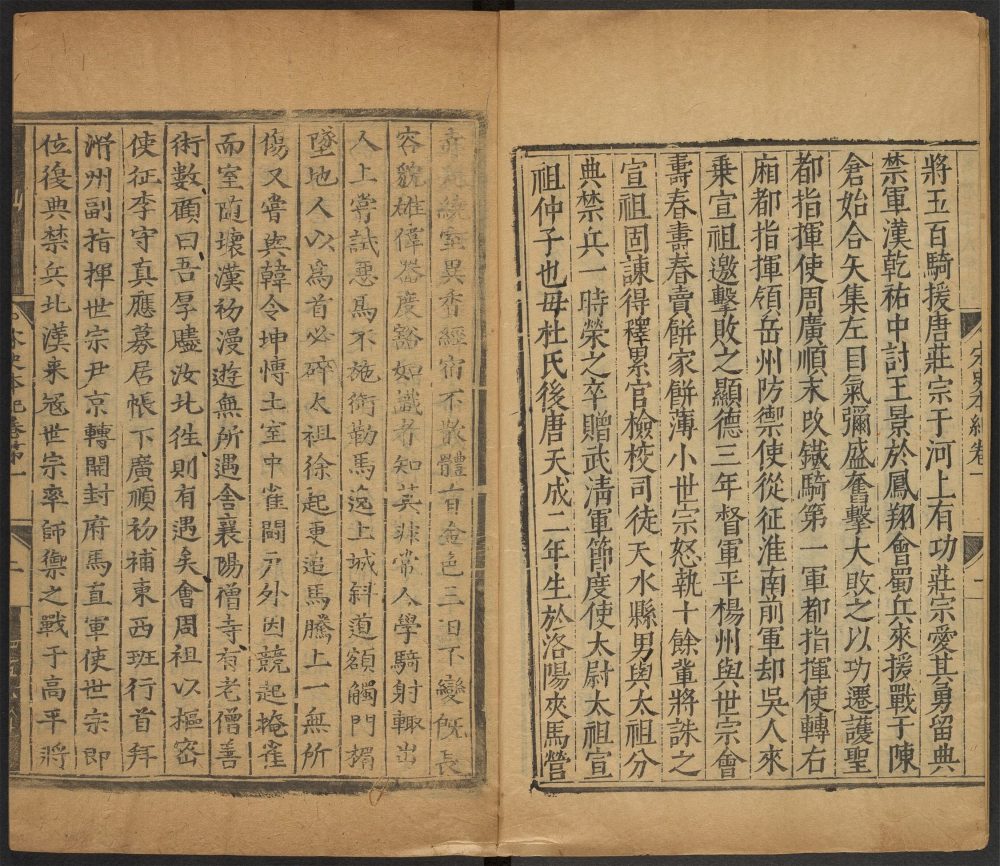 將五百騎援唐莊宗于河上有功莊宗愛其勇留典
禁軍漢乾祐中討王景於鳳翔會蜀兵來援戰于陳
倉始合矢集左目氣彌盛奮擊大敗之以功遷護聖
都指揮使周廣順末改鐵騎第一軍都指揮使轉右
廂都指揮領岳州防禦使從征淮南前軍却吳人來
乗宣祖邀擊敗之顯德三年督軍平楊州與世宗會
壽春壽春賣餅家餅薄小世宗怒執十餘輩將誅之
宣祖固諫得釋累官檢校司徒天水縣男與太祖分
典禁兵一時榮之卒贈武淸軍節度使太尉太祖宣
祖仲子也母杜氏後唐天成二年生於洛陽夾馬營
赤光繞室異香經宿不散體有金色三日不變旣長
容貌雄偉器度豁如識者知其非常人學騎射輒出
人上嘗試惡馬不施銜勒馬逸上城斜道額觸門楣
墜地人以爲首必碎太祖徐起更追馬騰上一無所
傷又嘗與韓令坤慱土室中雀鬬戸外因競起掩雀
而室隨壞漢初漫遊無所遇舍襄陽僧寺有老僧善
術數顧曰吾厚贐汝北往則有遇矣會周祖以樞密
使征李守真應募居帳下廣順初補東西班行首拜
滑州副指揮世宗尹京轉開封府馬直軍使世宗即
位復典禁兵北漢來冦世宗率師禦之戰于高平將